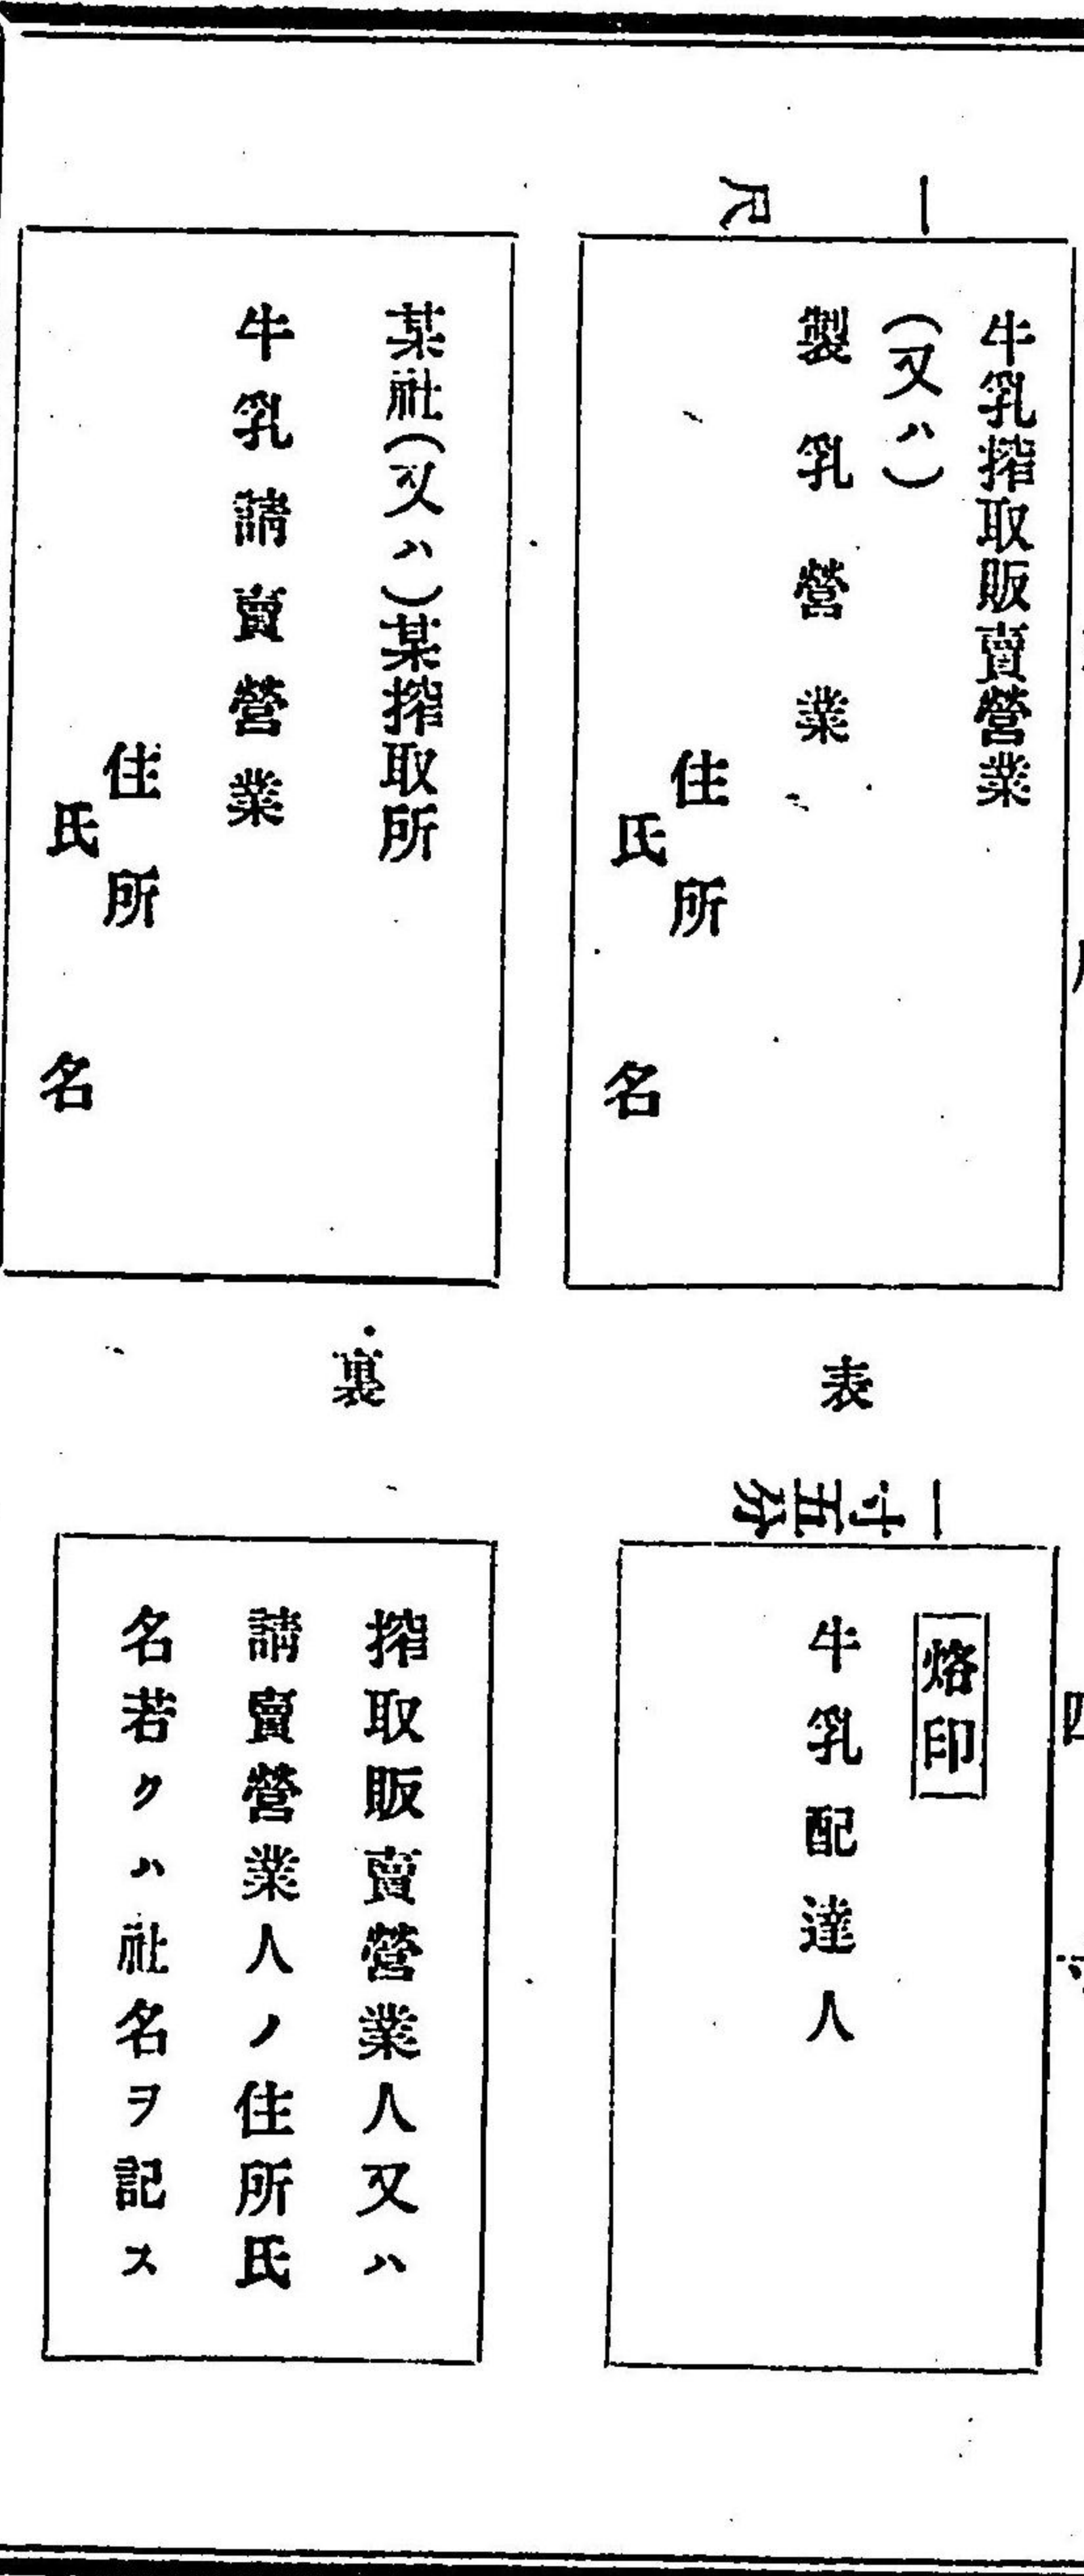 一尺
牛乳搾取販賣營業
（又ハ）
製乳營業
住所
氏名
某社（又ハ）某搾取所
牛乳請賣營業
住所
氏名
表
一寸五分
烙印
牛乳配達人
裏
搾取販賣營業人又ハ
請賣營業人ノ住所氏
名若クハ社名ヲ記ス